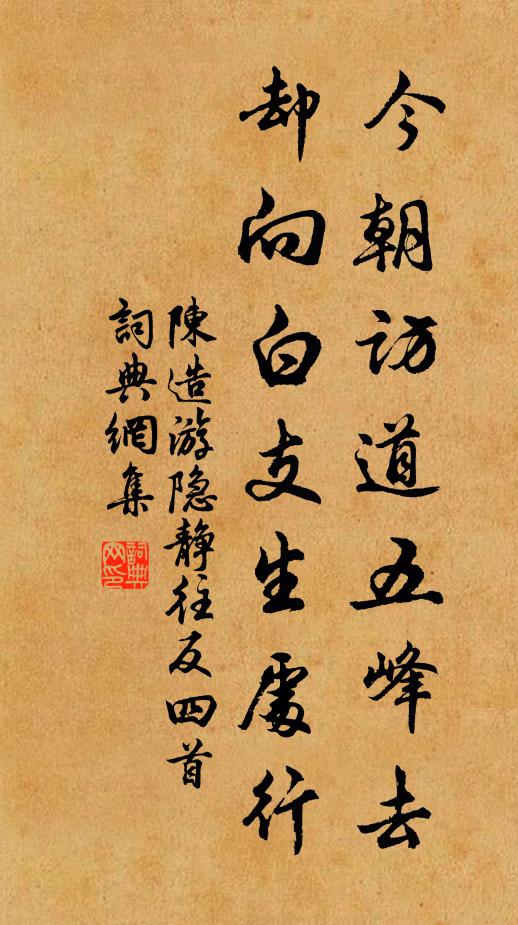 今朝訪道五峰去
却向白支生處行
陳造游隐静往反四首
詞典網集
詞典網印